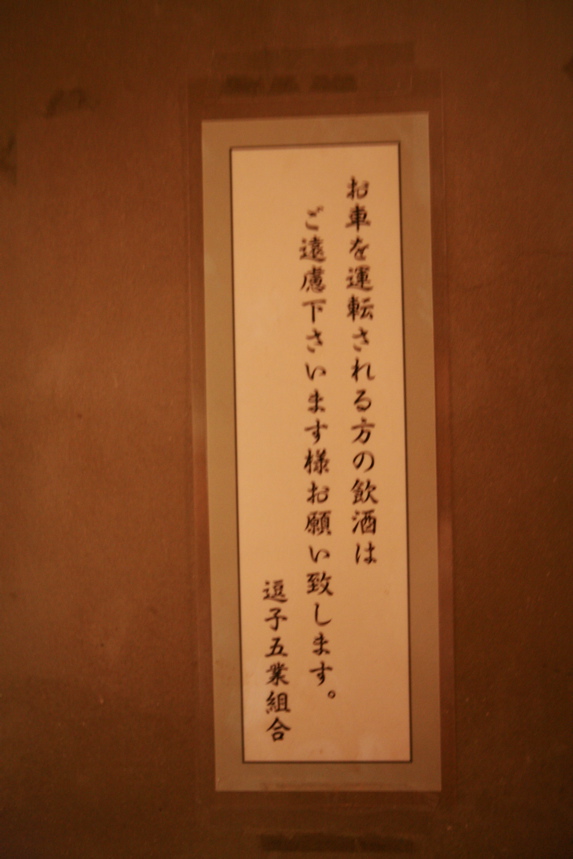 お車を運転される方の飲酒は
ご遠慮下さいます様お願い致します。
逗子五業組合